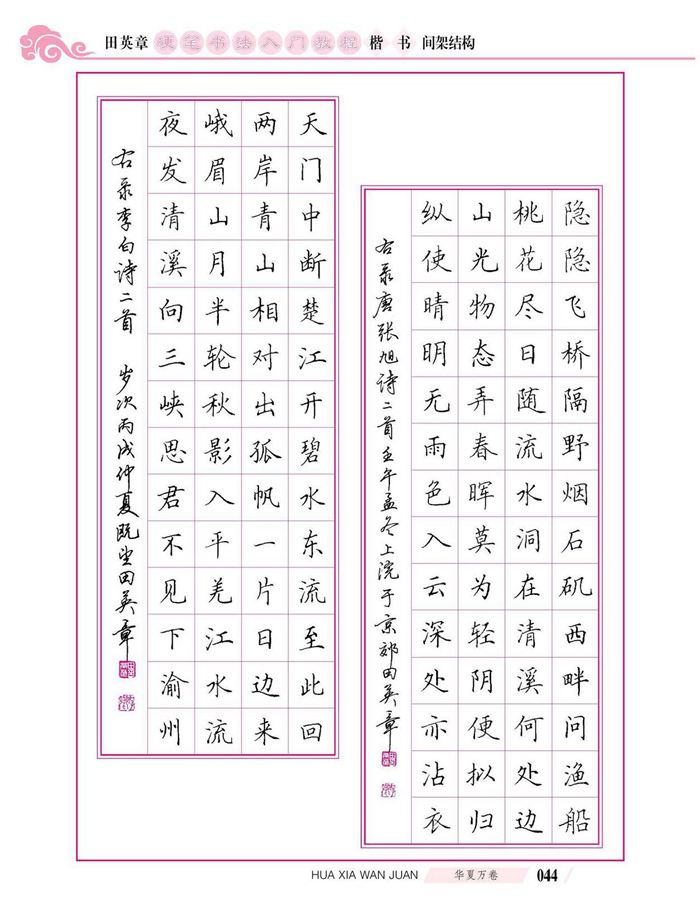 田英章 硬笔书法入门教程 楷书 间架结构
隐隐飞桥隔野烟石矶西畔问渔船
桃花尽日随流水洞在清溪何处边
山光物态弄春晖莫为轻阴便拟归
纵使晴明无雨色入云深处亦沾衣
右录唐张旭诗二首壬午孟冬上浣于京郊田英章
天门中断楚江开碧水东流至此回
两岸青山相对出孤帆一片日边来
峨眉山月半轮秋影入平羌江水流
夜发清溪向三峡思君不见下渝州
右录李白诗二首 岁次丙戌仲夏既望田英章
HUA XIA WAN JUAN 华夏万卷 044